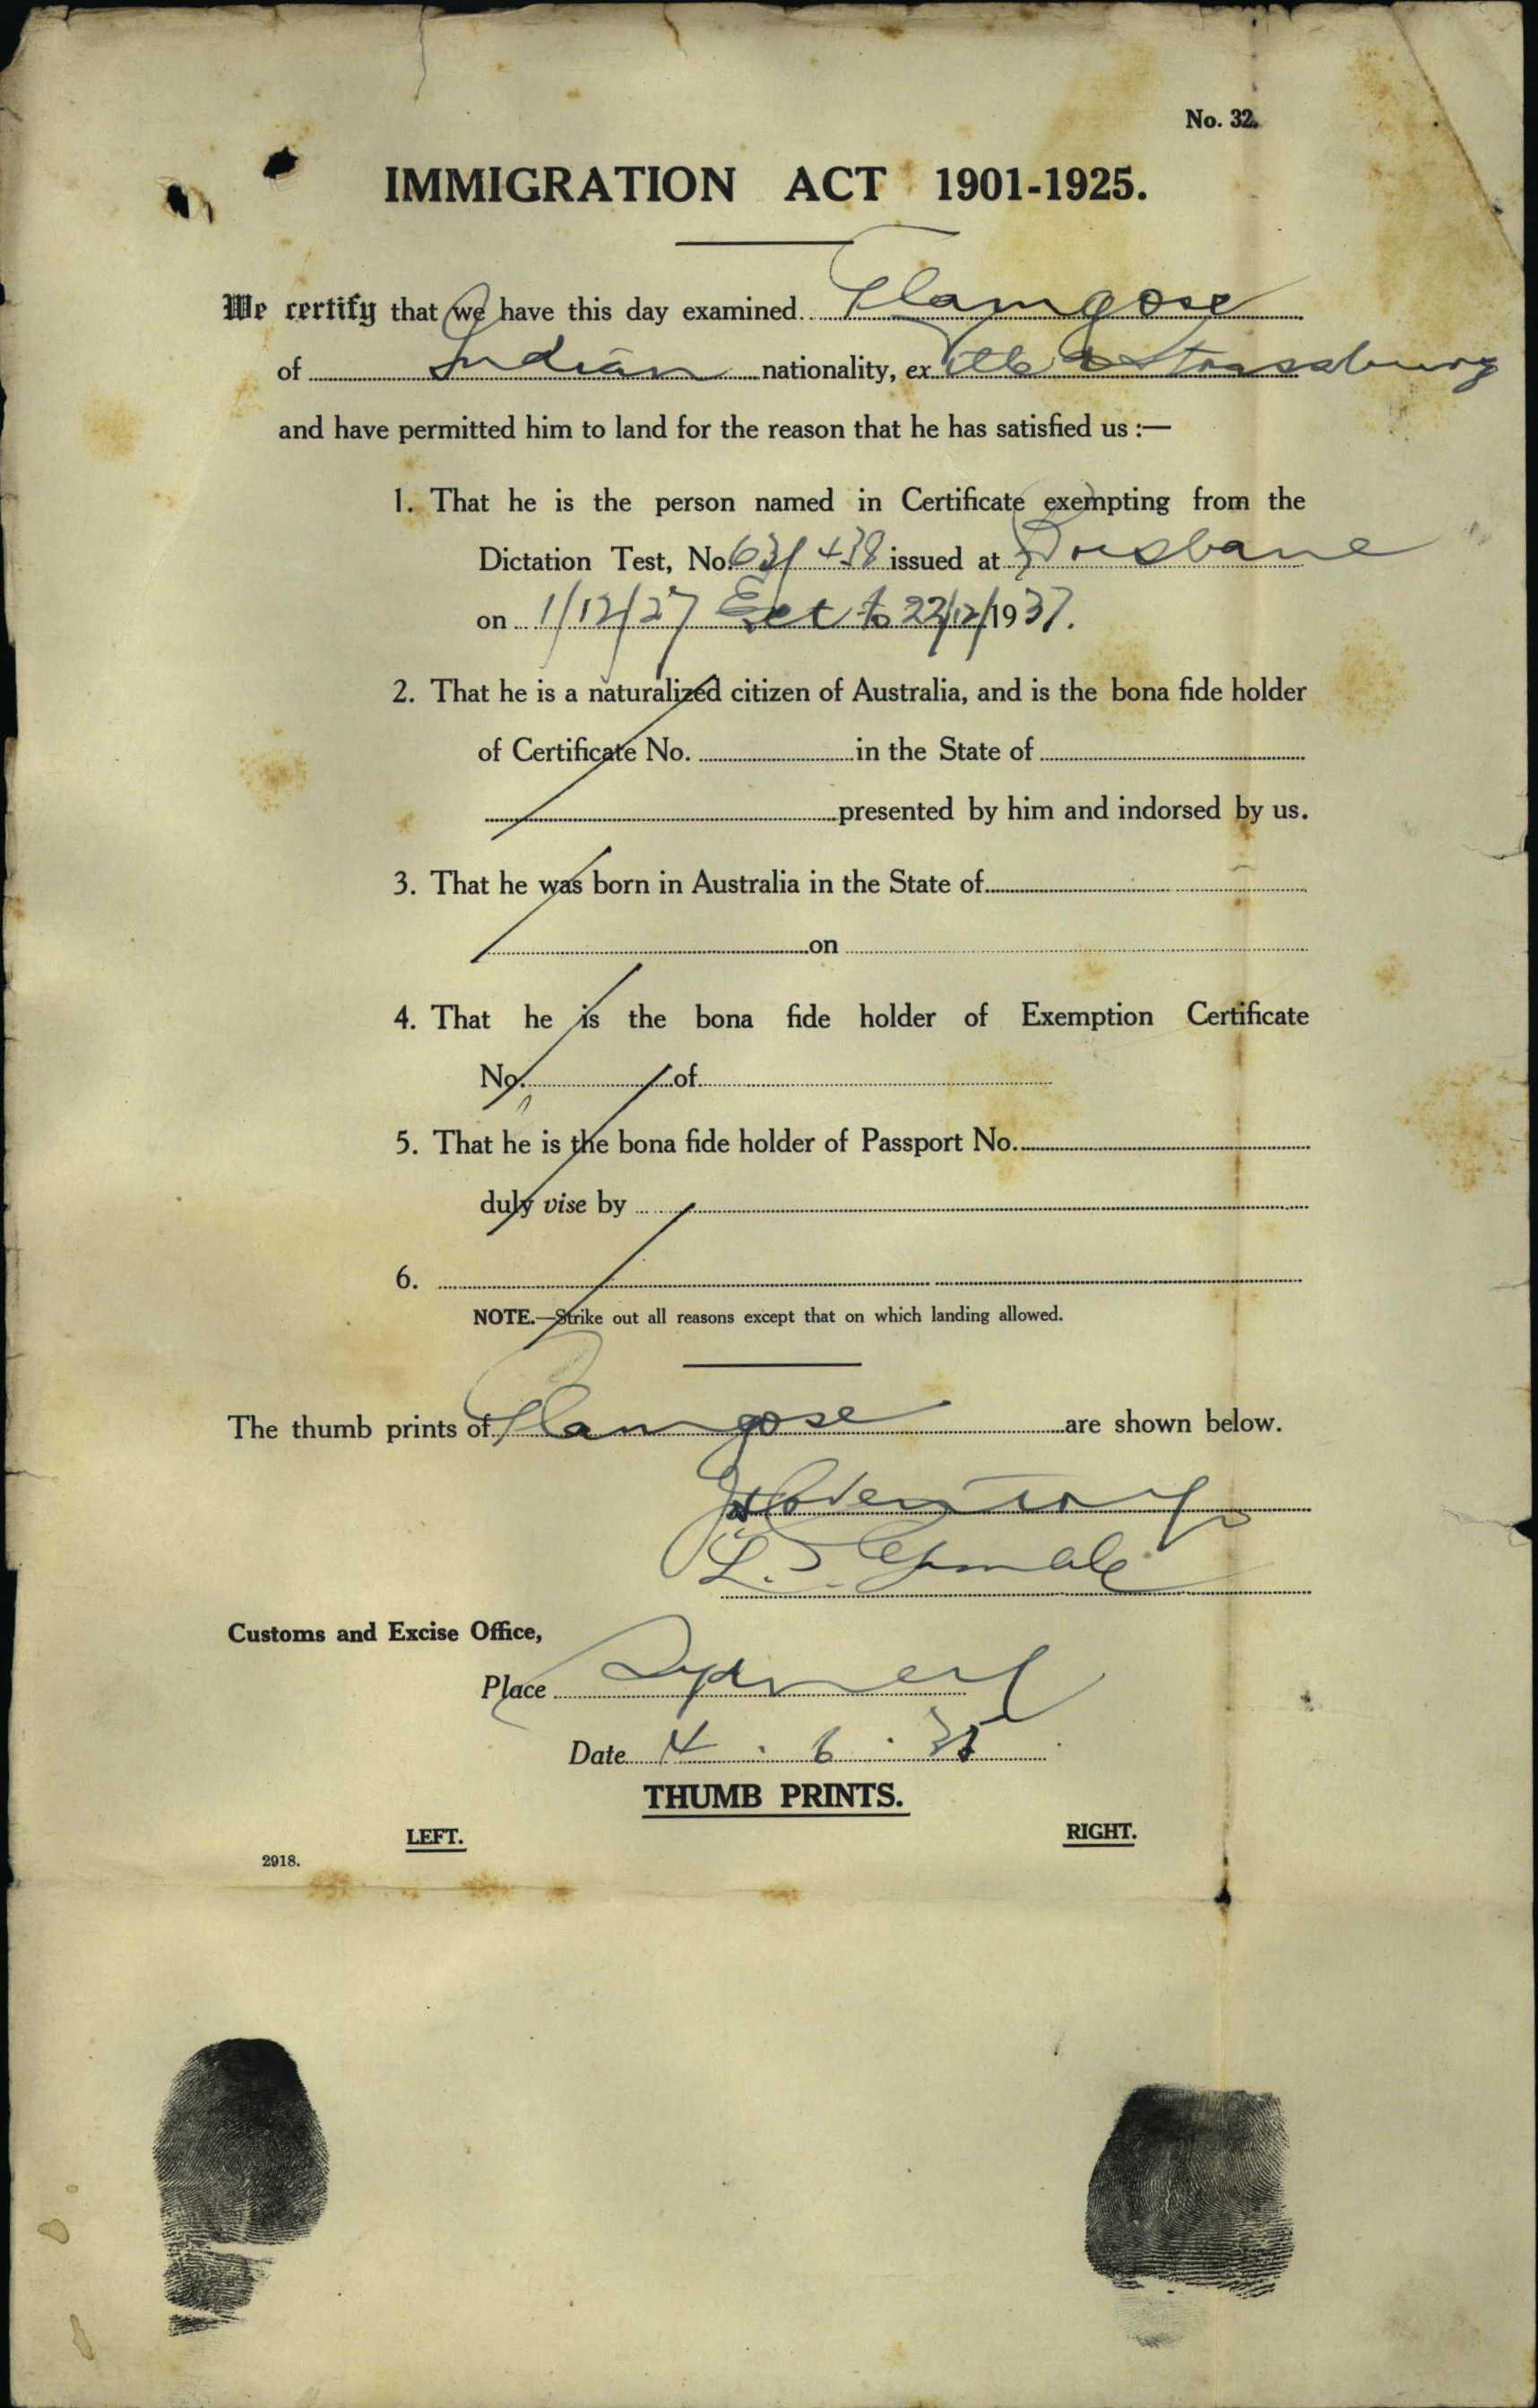 No. 32.
IMMIGRATION ACT 1901-1925.
We certify that we have this day examined
of Indian nationality, ex Ville de Strassburg
and have permitted him to land for the reason that he has satisfied us :—
1. That he is the person named in Certificate exempting from the
Dictation Test, No. 63/438 issued at Brisbane
on 1/12/27 Ext to 22/12/1937.
2. That he is a naturalized citizen of Australia, and is the bona fide holder
of Certificate No. in the State of
presented by him and indorsed by us.
3. That he was born in Australia in the State of
on
4. That he is the bona fide holder of Exemption Certificate
No. of
5. That he is the bona fide holder of Passport No.
duly vise by
6.
NOTE.—Strike out all reasons except that on which landing allowed.
The thumb prints of are shown below.
Customs and Excise Office,
Place Sydney
Date 4 . 6 . 35
THUMB PRINTS.
LEFT. RIGHT.
2918.